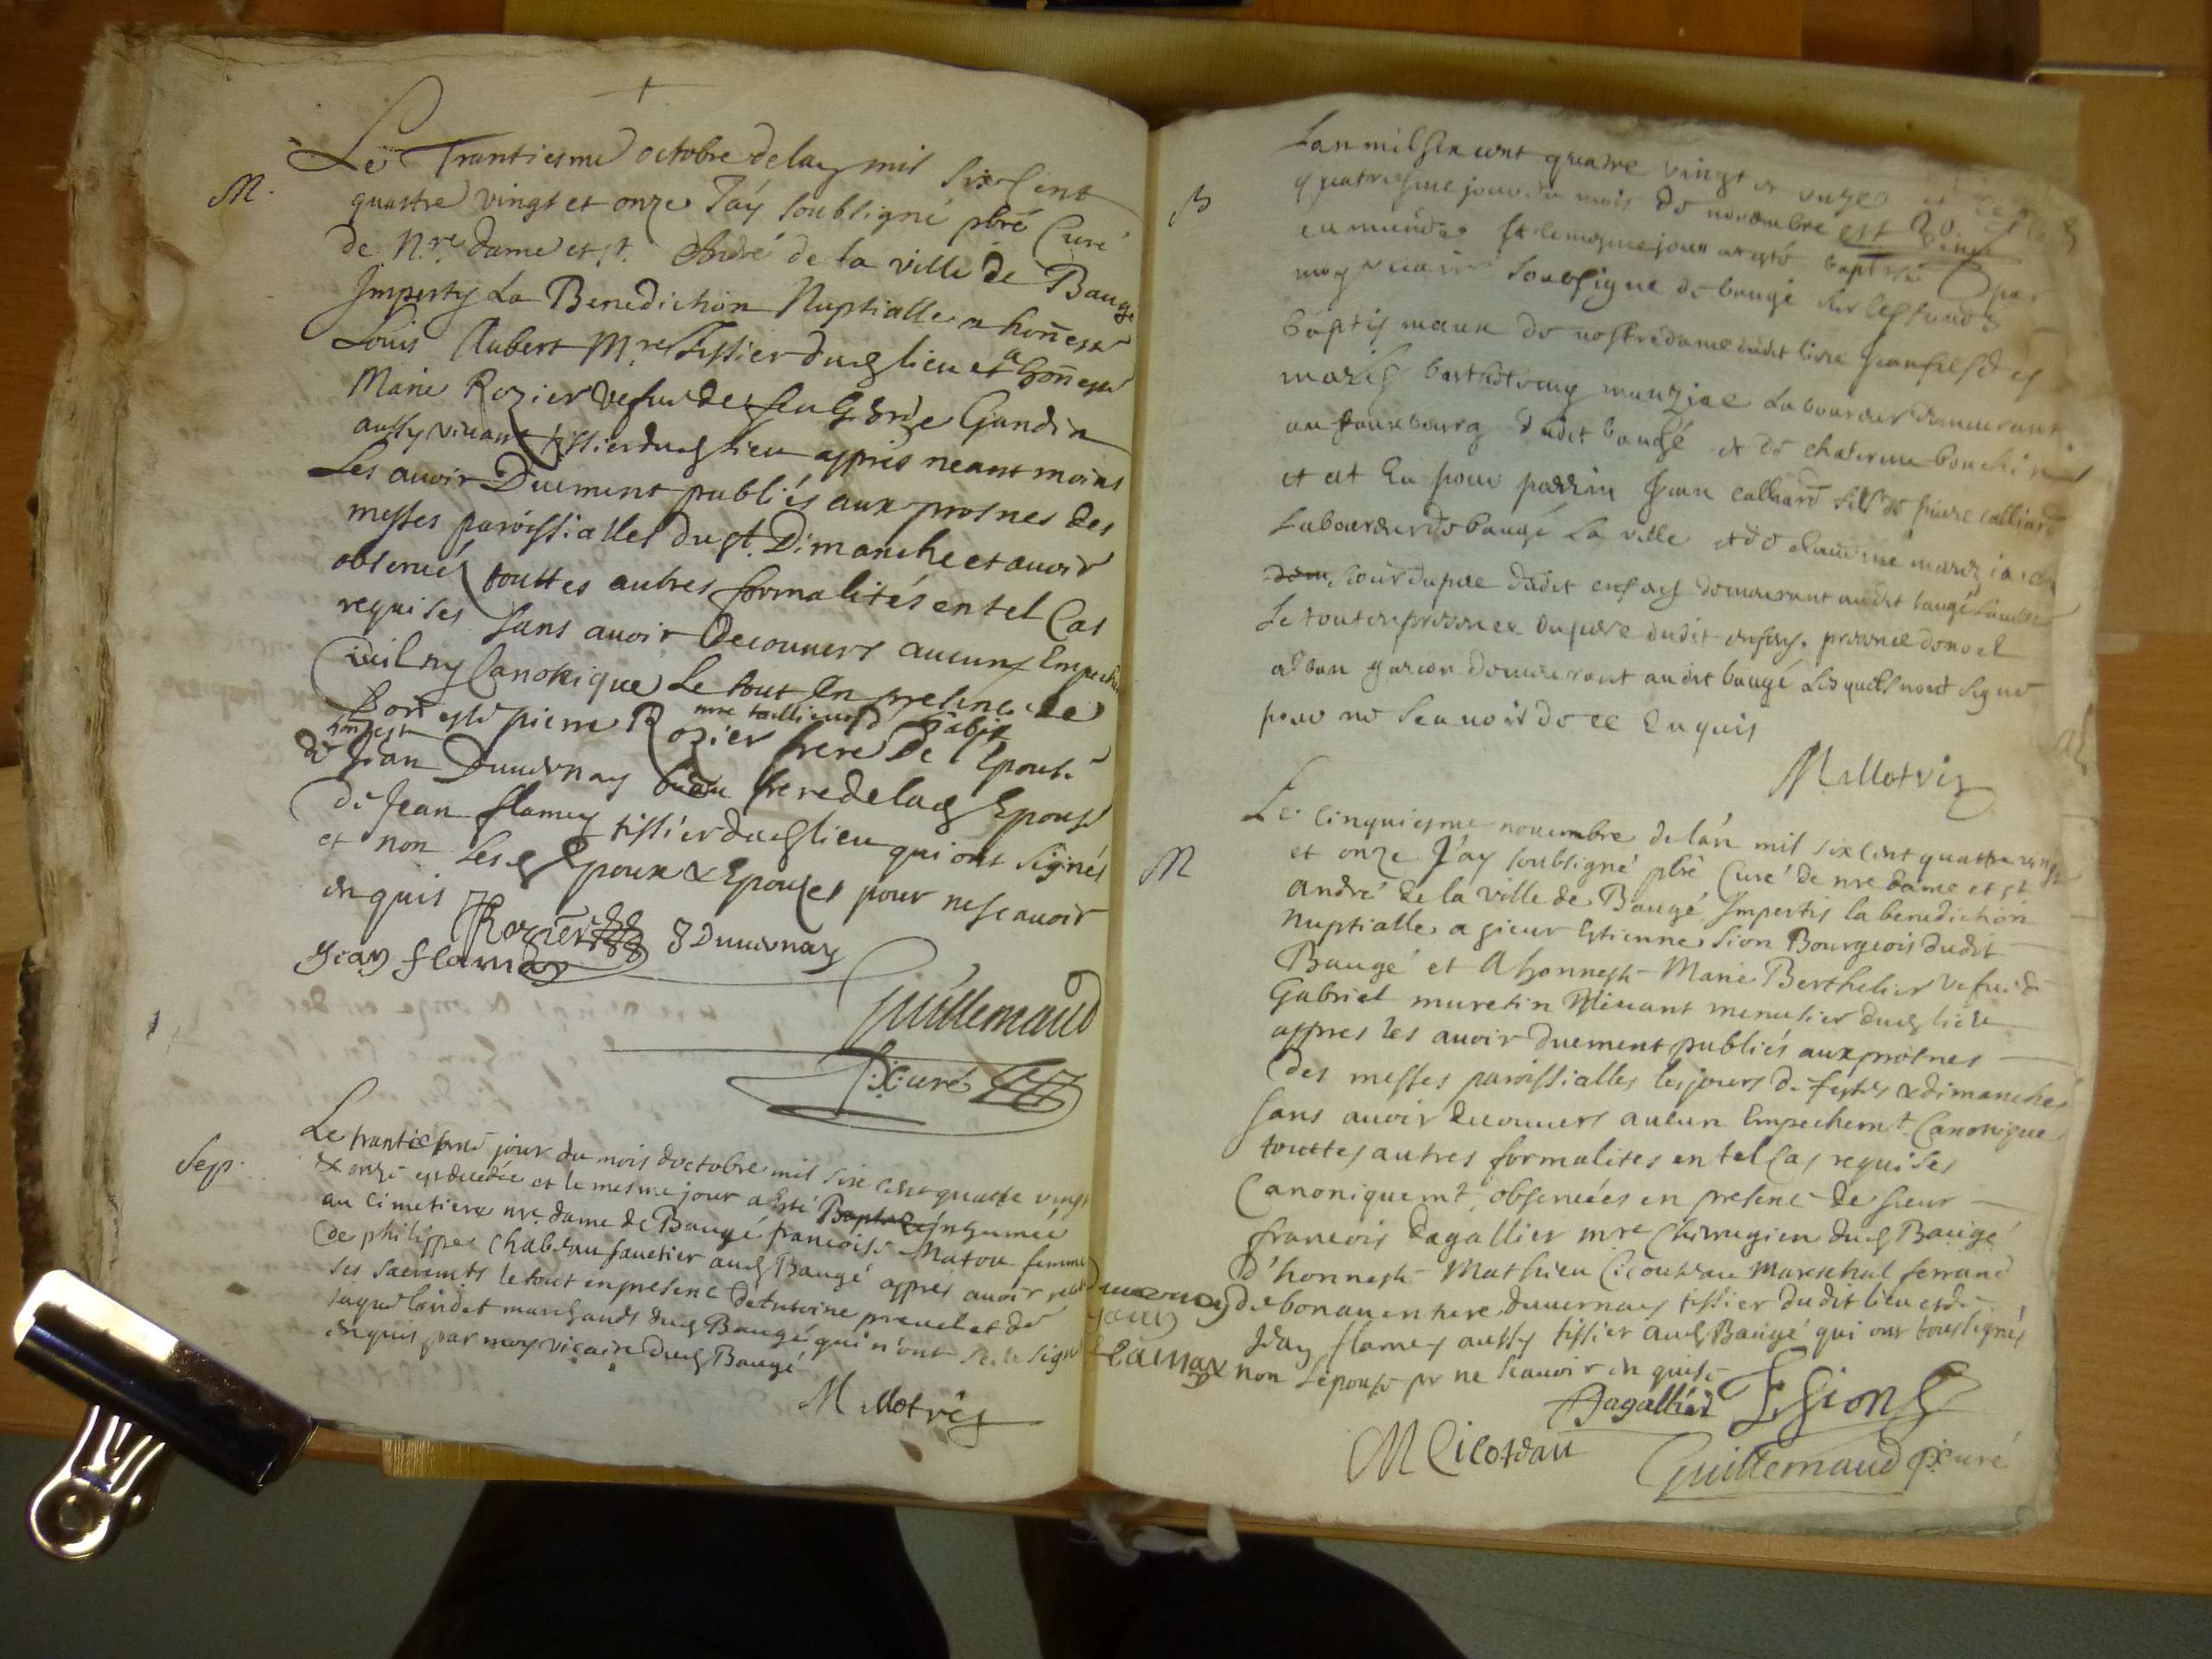 M.
Le Trantiesme octobre delan mil six cent
quattre vingt et onze J'ay soubsigné pbre Curé
de N.re dame et st. André de la ville de Baugé
Imparty La Benediction Nuptialle a honneste
Louis Aubert M.re tissier dud lieu et a honneste
Marie Rozier vefue de feu Gandin
aussy viuant tissier dud lieu appres neant moins
Les auoir Duement publiés aux prosnes des
messes paroissialles du st. Dimanche et auoir
obserué touttes autres formalités en tel Cas
requises sans auoir Decouuert aucuns Empechem
Ciuil ny Canonique Le tout En presence de
honneste pierre Rozier mre tallieur d'habitz frere De l'Epouse
de honneste Jean Duuernay beau frere de lad Epouse
de Jean flamey tissier dud lieu qui ont signés
et non Lesd Epoux & Epouses pour ne scauoir
enquis
Rozier J Duuernay
Jean flamey
Guillemaud
curé
Sep.
Le trantiesme jour du mois doctobre mil six cent quatre vingt
& onze est decedée et le mesme jour a esté Baptizé inhumée
au cimetiere nre dame de Baugé francoise Matou femme
de philippe sauetier aud Baugé appres auoir receu
ses sacremts le tout en presence de Antoine preuel et de
Jaque landet marchands dud Baugé qui n'ont sceu signé
enquis par moy vicaire dud Baugé
Millot vic
B
Lan mil six cent quatre vingt et onze et le
quatriesme jour du mois de nouembre est venu
au monde et le mesme jour at esté baptisé par
moy vicaire soubsigne de baugé sur les fonds
baptismaux de nostre dame dudit lieu Jean fils de
laboureur demeurant
au fauxbourg dudit baugé et de
et at Eu pour parrin Jean calliard fils de pierre calliard
Laboureur de baugé La ville et de
soeur du pere dudit enfans demeurant audit baugé
Le tout en presence du pere dudit enfans
garcon demeurant audit baugé Lesquels n'ont signé
pour ne scauoir de ce Enquis
Millot vic
M
Le cinquiesme nouembre de lan mil six cent quattre vingt
et onze J'ay soubsigné pbre Curé de nre dame et st
andré de la ville de Baugé Impertis la benediction
Nuptialle a sieur Estienne Sion Bourgeois dudit
Baugé et A honneste Marie Berthelier vefue de
Gabriel muretin viuant menusier dud lieu
appres les auoir duement publiés aux prosnes
des messes paroissialles les jours de festes & dimanches
sans auoir decouuert aucun Empechemt Canonique
touttes autres formalites en tel Cas requises
Canoniquemt obseruées en presence de sieur
francois dagallier mre Chirurgien dud Baugé
d'honneste Mathieu Cicouteau Mareschal ferrand
de bonauenture duuernay tissier dudit lieu et de
Jean flamey aussy tissier aud Baugé qui ont tous signés
& non Lepouse pr ne scauoir enquise
Duuernay
Jean
flamay
Dagallier E Sion
M Cicotdau
Guillemaud curé